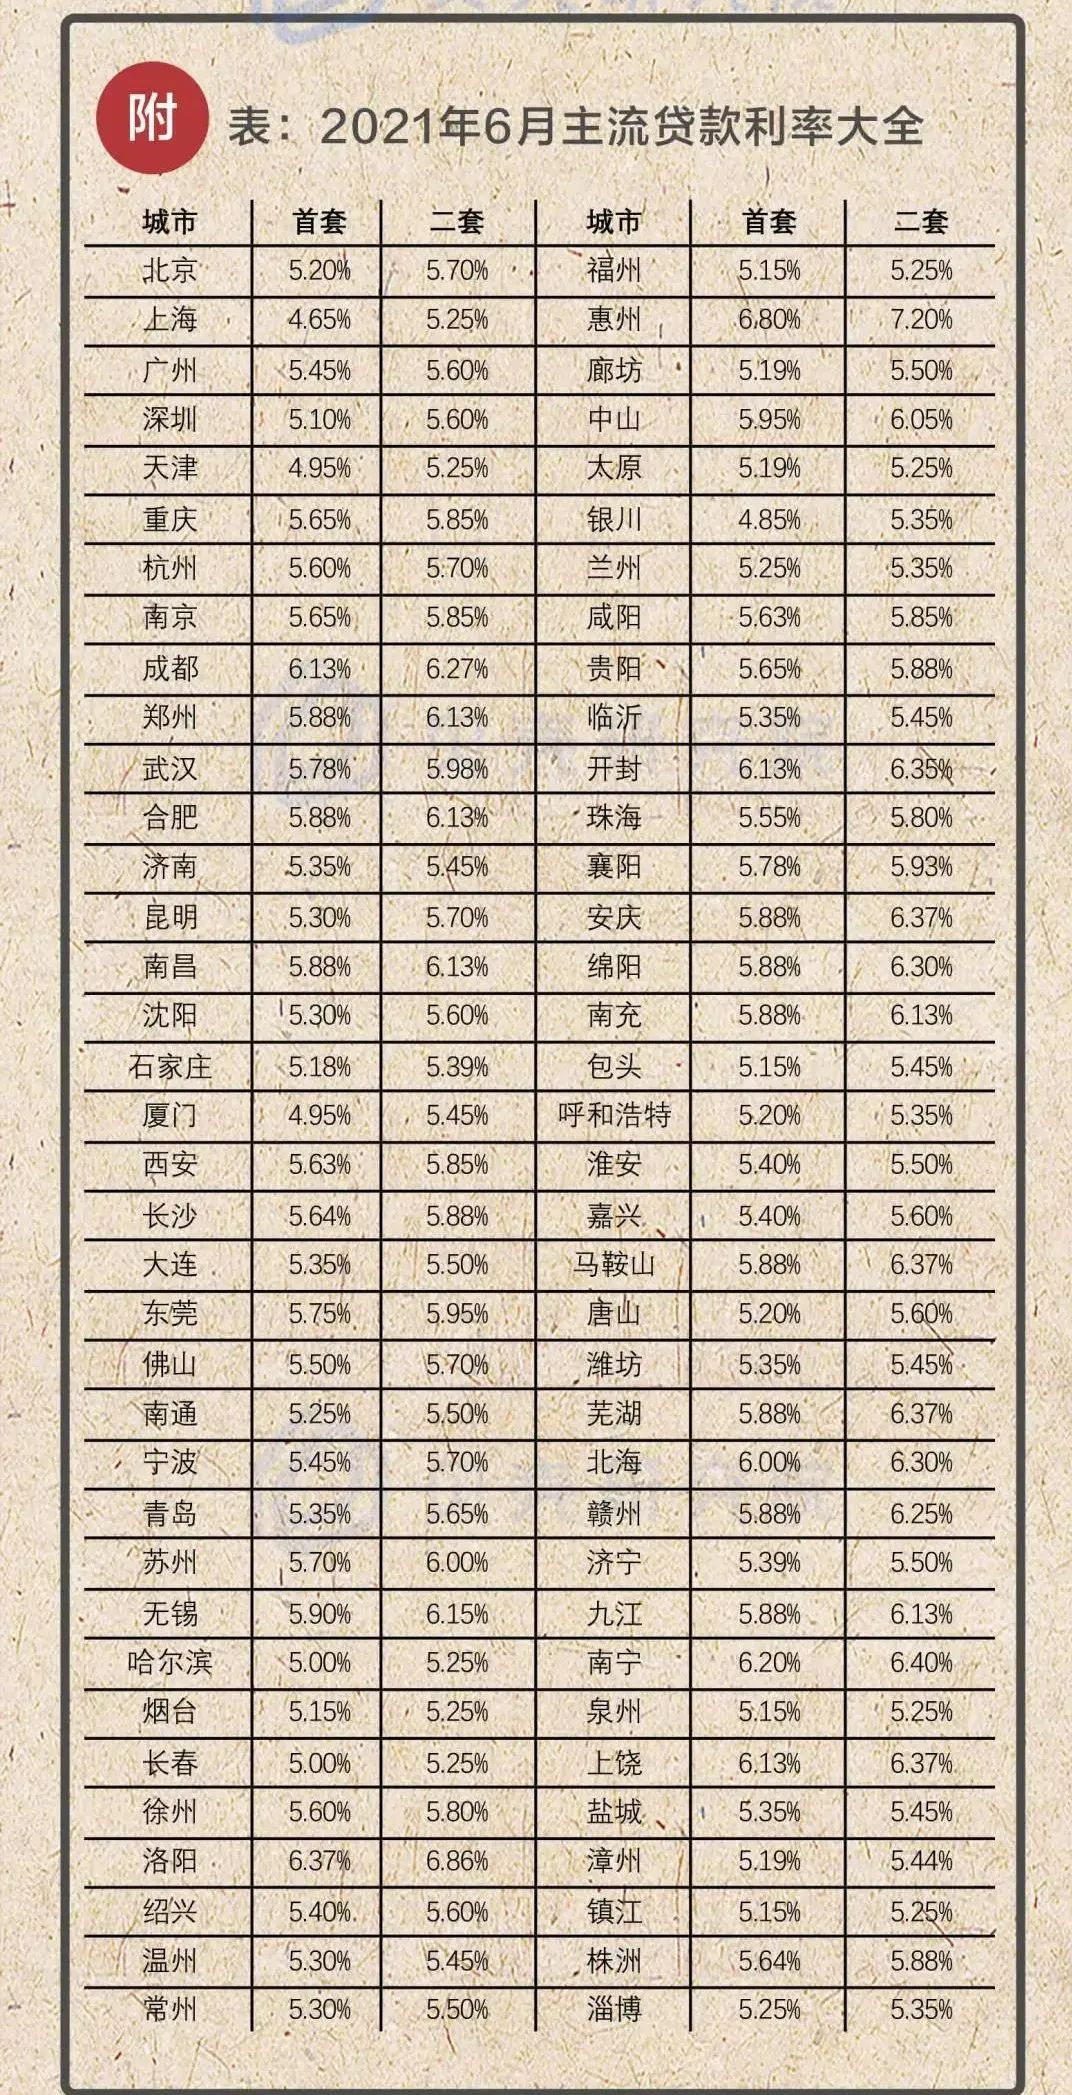 附
表：2021年6月主流贷款利率大全
城市 首套 二套 城市 首套 二套
北京 5.20% 5.70% 福州 5.15% 5.25%
上海 4.65% 5.25% 惠州 6.80% 7.20%
广州 5.45% 5.60% 廊坊 5.19% 5.50%
深圳 5.10% 5.60% 中山 5.95% 6.05%
天津 4.95% 5.25% 太原 5.19% 5.25%
重庆 5.65% 5.85% 银川 4.85% 5.35%
杭州 5.60% 5.70% 兰州 5.25% 5.35%
南京 5.65% 5.85% 咸阳 5.63% 5.85%
成都 6.13% 6.27% 贵阳 5.65% 5.88%
郑州 5.88% 6.13% 临沂 5.35% 5.45%
武汉 5.78% 5.98% 开封 6.13% 6.35%
合肥 5.88% 6.13% 珠海 5.55% 5.80%
济南 5.35% 5.45% 襄阳 5.78% 5.93%
昆明 5.30% 5.70% 安庆 5.88% 6.37%
南昌 5.88% 6.13% 绵阳 5.88% 6.30%
沈阳 5.30% 5.60% 南充 5.88% 6.13%
石家庄 5.18% 5.39% 包头 5.15% 5.45%
厦门 4.95% 5.45% 呼和浩特 5.20% 5.35%
西安 5.63% 5.85% 淮安 5.40% 5.50%
长沙 5.64% 5.88% 嘉兴 5.40% 5.60%
大连 5.35% 5.50% 马鞍山 5.88% 6.37%
东莞 5.75% 5.95% 唐山 5.20% 5.60%
佛山 5.50% 5.70% 潍坊 5.35% 5.45%
南通 5.25% 5.50% 芜湖 5.88% 6.37%
宁波 5.45% 5.70% 北海 6.00% 6.30%
青岛 5.35% 5.65% 赣州 5.88% 6.25%
苏州 5.70% 6.00% 济宁 5.39% 5.50%
无锡 5.90% 6.15% 九江 5.88% 6.13%
哈尔滨 5.00% 5.25% 南宁 6.20% 6.40%
烟台 5.15% 5.25% 泉州 5.15% 5.25%
长春 5.00% 5.25% 上饶 6.13% 6.37%
徐州 5.60% 5.80% 盐城 5.35% 5.45%
洛阳 6.37% 6.86% 漳州 5.19% 5.44%
绍兴 5.40% 5.60% 镇江 5.15% 5.25%
温州 5.30% 5.45% 株洲 5.64% 5.88%
常州 5.30% 5.50% 淄博 5.25% 5.35%